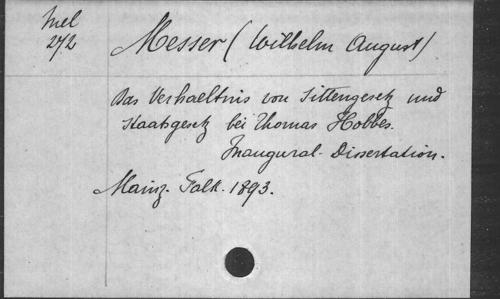 Mel
272
Messer (Wilhelm August)
Das Verhaeltnis von Sittengesetz und
Staatsgesetz bei Thomas Hobbes.
Inaugural-Dissertation.
Mainz. Falk. 1893.